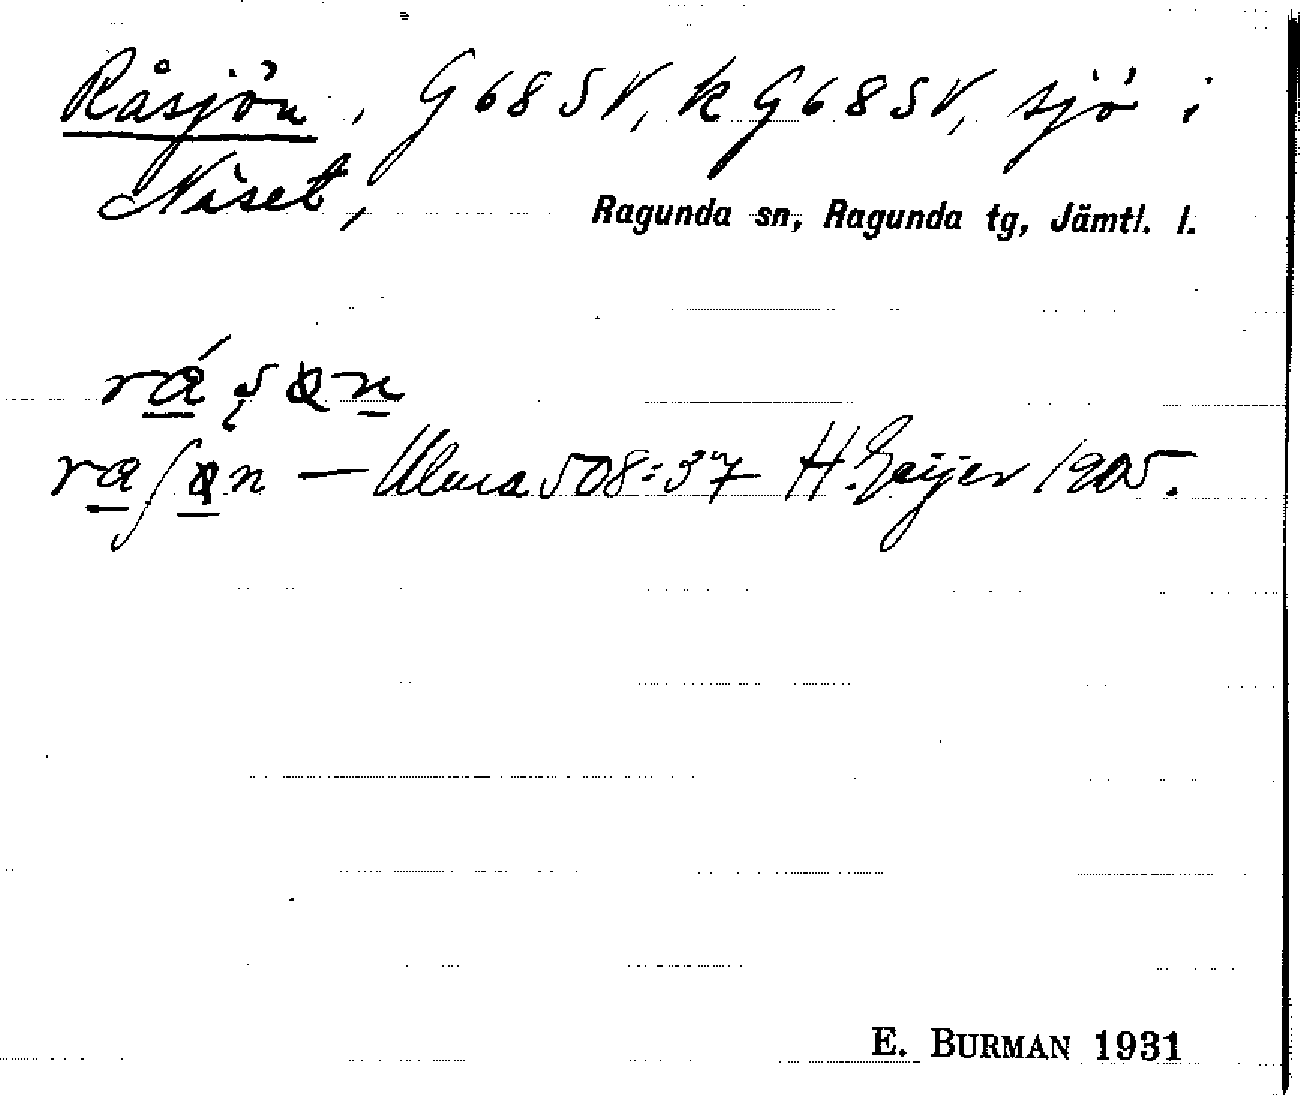 Råsjön, G 68 SV, k G 68 SV, sjö i
Näset,
Ragunda sn, Ragunda tg, Jämtl. l.
— Ulma 508:37 H. Geijer 1905.
E. BURMAN 1931